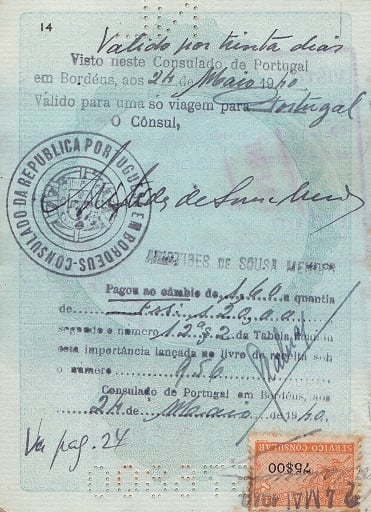 14
Valido por trinta dias
Visto neste Consulado de Portugal
em Bordéus, aos 24 de Maio 1940
Válido para uma só viagem para Portugal
O Cônsul,
CONSULADO DA REPUBLICA PORTUGUESA EM BORDEUS
Aristides de Sousa Mendes
ARISTIDES DE SOUSA MENDES
Pagou ao câmbio de 160 a quantia
de Frs: 120,00
segundo o número 12 da Tabela
esta importância lançada no livro de receita sob
o número 956
Consulado de Portugal em Bordéus, aos
24 de Maio de 1940.
Ver pag. 24
SERVIÇO CONSULAR
75$00
24 MAI 1940